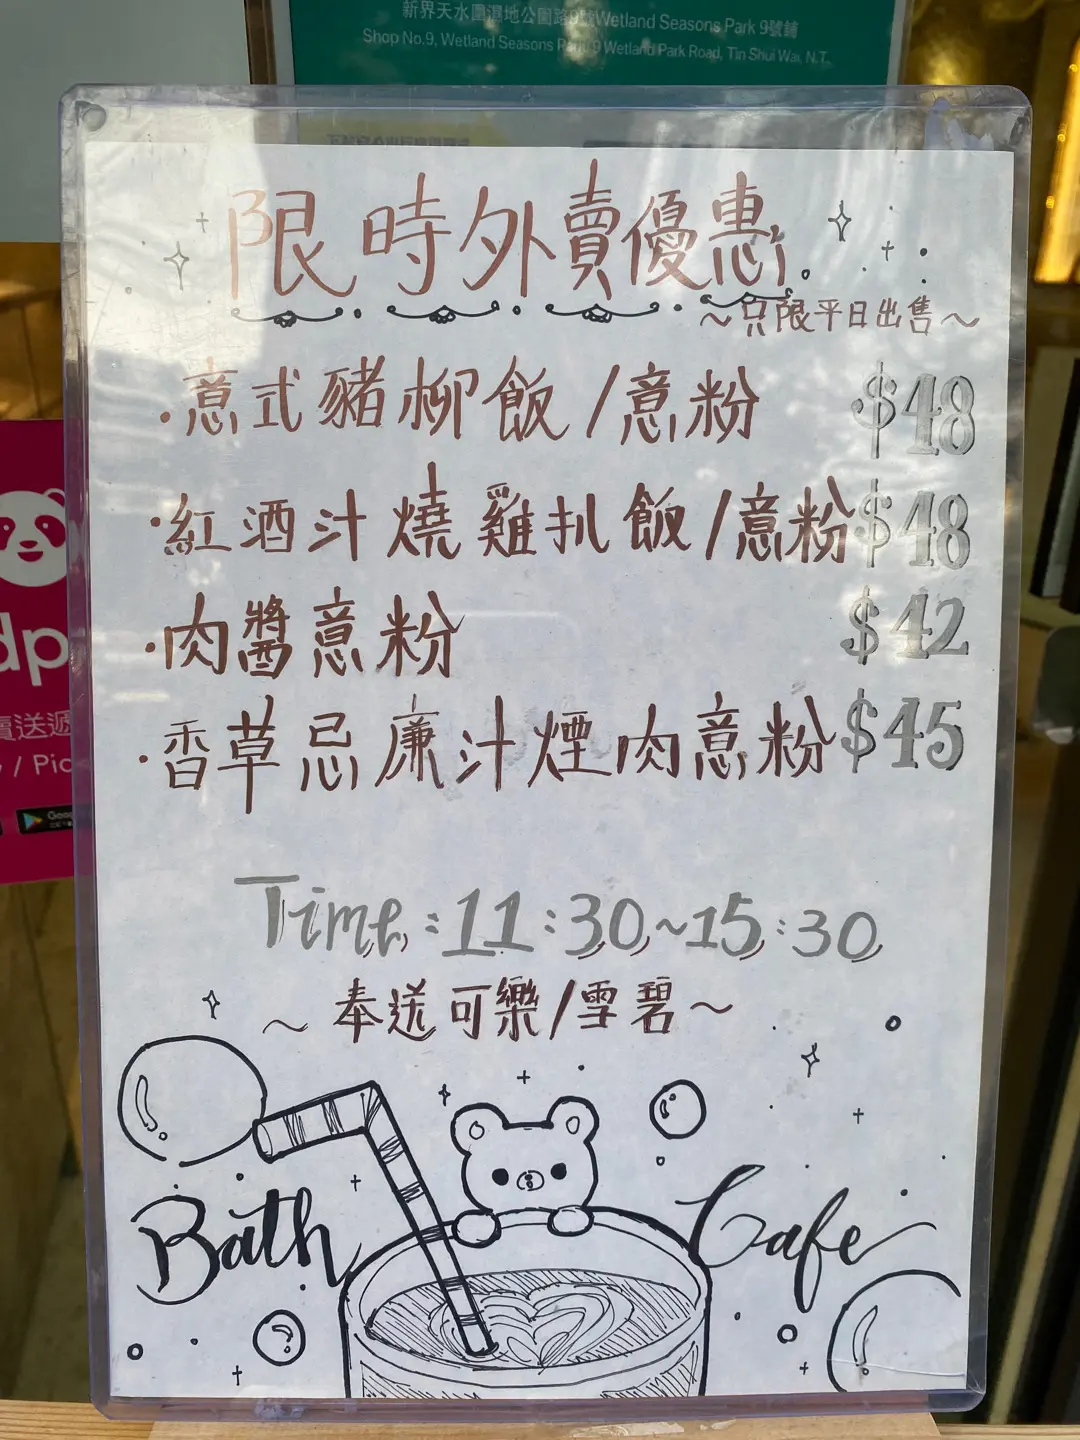 新界天水圍濕地公園路9號Wetland Seasons Park 9號鋪
Shop No.9, Wetland Seasons Park, 9 Wetland Park Road, Tin Shui Wai, N.T.
限時外賣優惠
～只限平日出售～
·意式豬柳飯/意粉 $48
·紅酒汁燒雞扒飯/意粉 $48
·肉醬意粉 $42
·香草忌廉汁煙肉意粉 $45
Time:11:30~15:30
～奉送可樂/雪碧～
Bath Cafe
dp
送遞
/ Pic